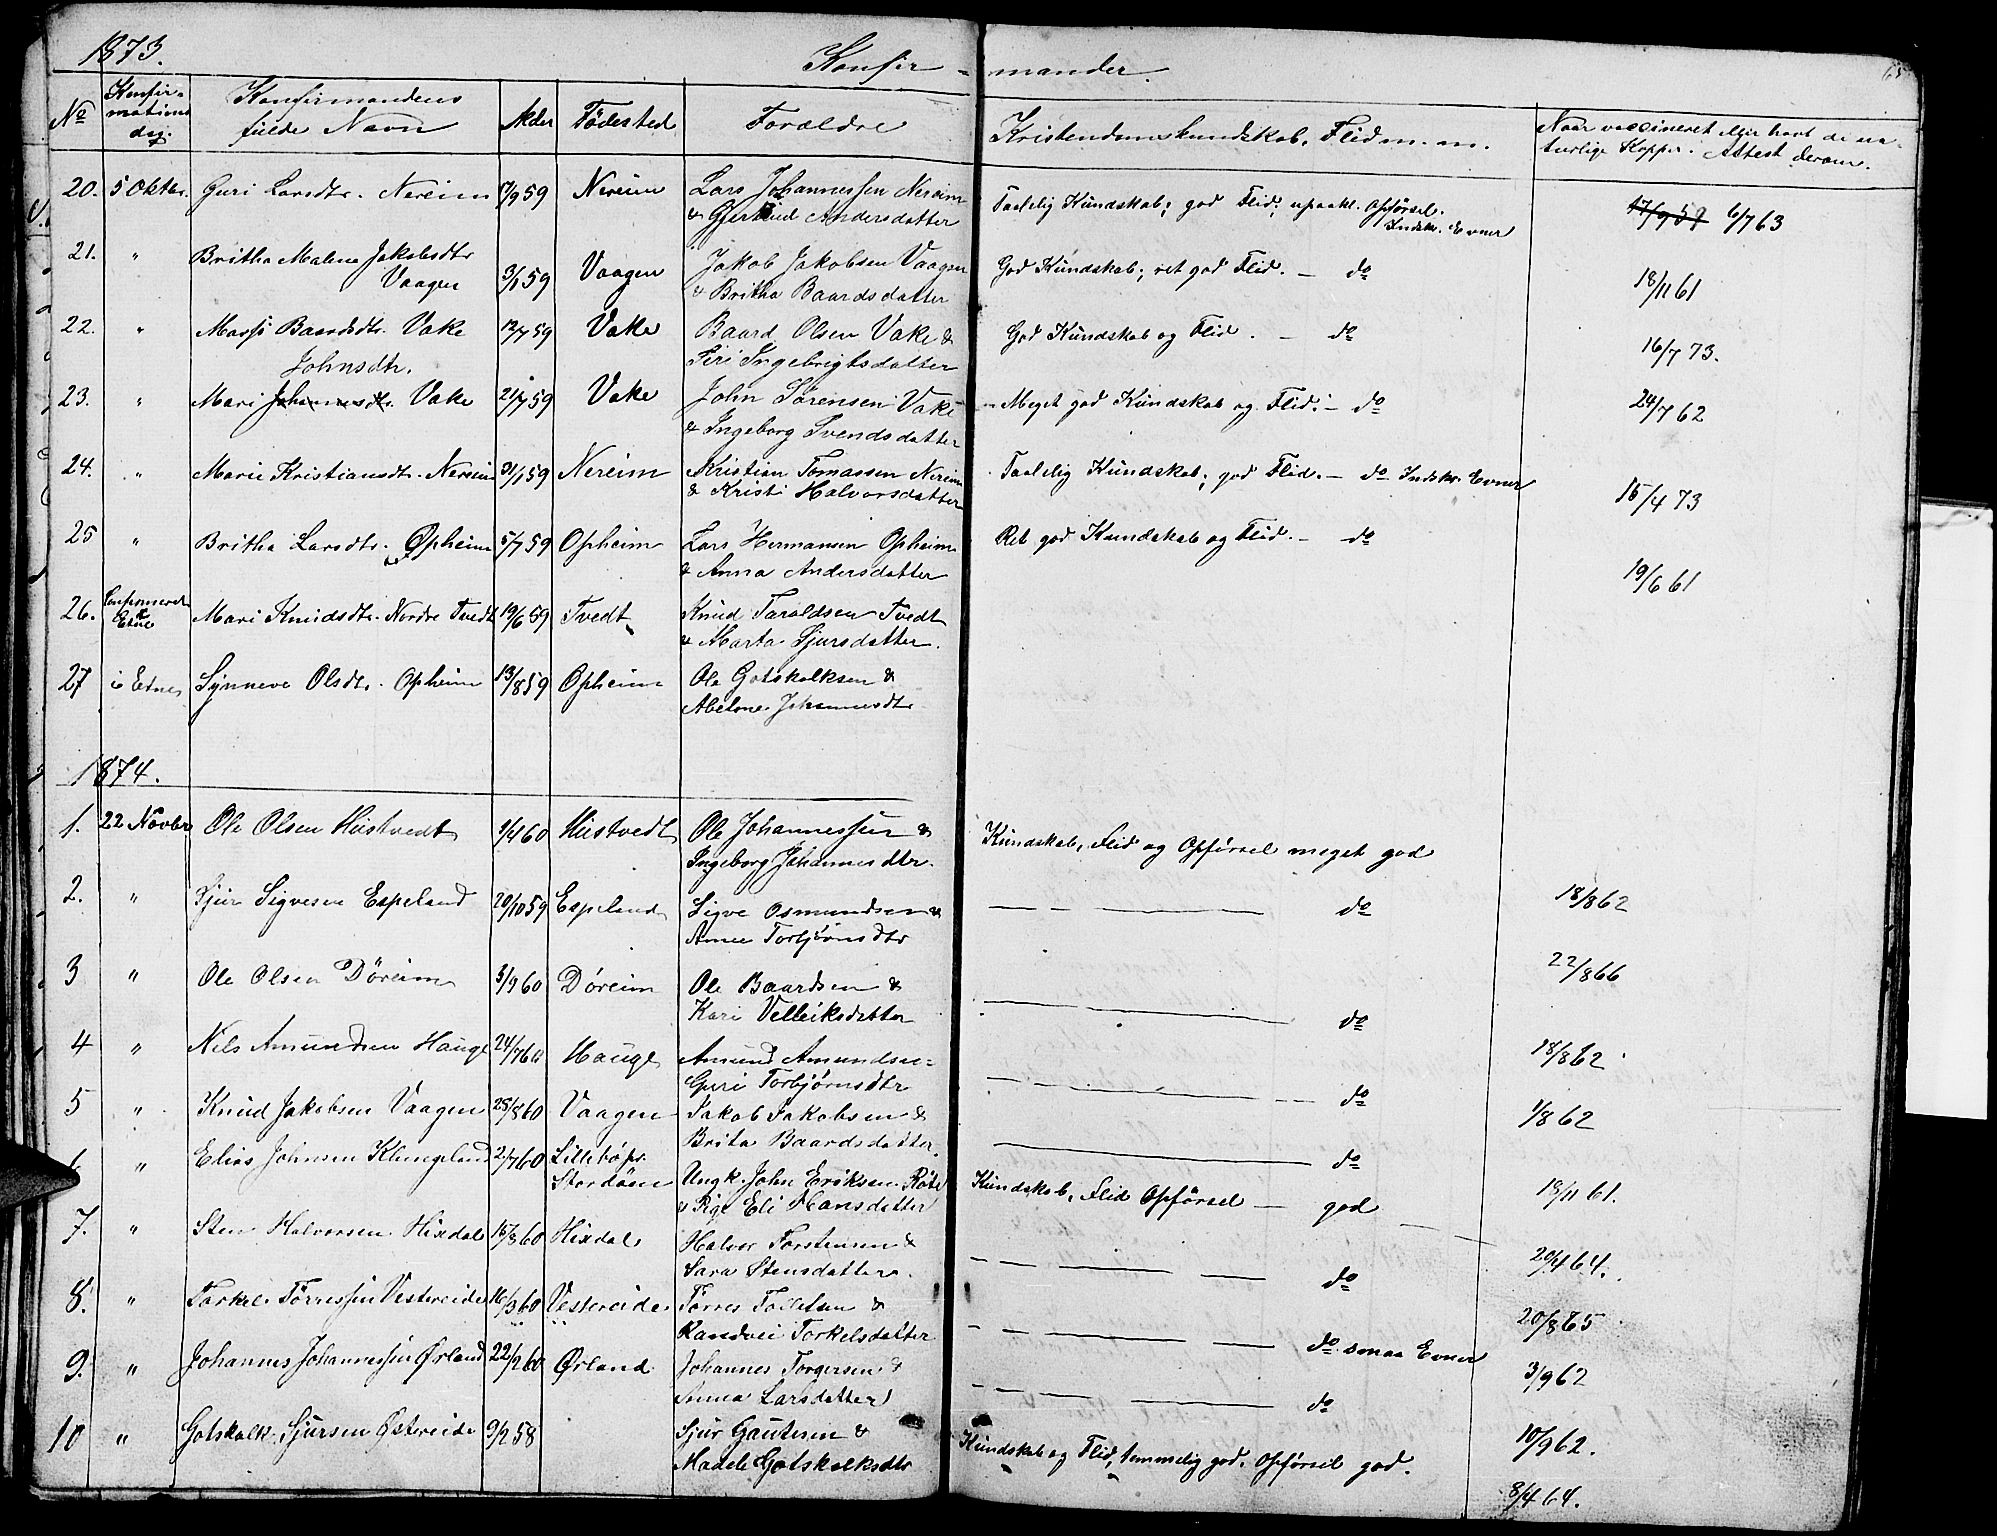 1873.
Konfir - mander.
65
No
Konfir-
mations
dag.
Konfirmandens
fulde Navn
Alder
Födested
Forældre
Kristendomskundskab, Flid m. m.
Naar vaccineret eller havt de na-
turlige Kopper. Attest derom.
20. 5 Oktbr. Guri Larsdtr. Nereim 17/9 59 Nereim Lars Johannessen Nereim Taalelig Kundskab; god Flid; upaakl. Opförsel. 17/9 59 6/7 63
& Gjertrud Andersdatter Indskr. Evner
21. " Britha Malene Jakobsdtr. Jakob Jakobsen Vaagen God Kundskab; ret god Flid. — do
Vaagen 3/1 59 Vaagen & Britha Baardsdatter 18/11 61
22. " Marsi Baardsdtr. Vake 12/7 59 Vake Baard Olsen Vake & God Kundskab og Flid. — do 16/7 73.
Siri Ingebrigtsdatter
Johnsdtr.
23. " Mari Johannesdtr. Vake 21/7 59 Vake John Sörensen Vake Meget god Kundskab og Flid. — do 24/7 62
& Ingeborg Svendsdatter
24. " Marie Kristiansdtr. Nereim 31/1 59 Nereim Kristian Tomassen Nereim Taalelig Kundskab; god Flid. — do Indskr. Evner
& Kristi Halvorsdatter 15/4 73
25 " Britha Larsdtr. Opheim 5/7 59 Opheim Lars Hermansen Opheim Ret god Kundskab og Flid. — do
& Anna Andersdatter 19/6 61
26. Confirmeret
i Etne Mari Knudsdtr. Nordre Tvedt 19/6 59 Tvedt Knud Taraldsen Tvedt
& Marta Sjursdatter.
27 i Etne Synneve Olsdtr. Opheim 13/8 59 Opheim Ole Gotskalksen &
Abelone Johannesdtr
1874.
1. 22 Novbr Ole Olsen Hustvedt 1/4 60 Hustvedt Ole Johannessen & Kundskab, Flid og Opförsel meget god
Ingeborg Johannesdtr.
18/8 62
2. " Sjur Sigvesen Espeland 20/10 59 Espeland Sigve Osmundsen & — — — do
Anne Torbjörnsdtr
22/8 66
3 " Ole Olsen Döreim 3/9 60 Döreim Ole Baardsen &
Kari Velleiksdatter — — — do
18/8 62
4 " Nils Amundsen Hauge 24/7 60 Hauge Amund Amundsen
Guri Torbjörnsdtr — — — do
1/8 62
5 " Knud Jakobsen Vaagen 25/8 60 Vaagen Jakob Jakobsen &
Brita Baardsdatter. — — — do
18/11 61.
6 " Elias Johnsen Klungeland 2/7 60 Lillebö pr. Ungk. John Eriksen Röte Kundskab, Flid Opförsel — god
Stordöen & Pige Eli Hansdatter
20/4 64.
7. " Sten Halvorsen Hixdal 15/8 60 Hixdal Halvor Torstensen &
Sara Stensdatter. — — — do
20/8 65
8. " Torkel Törressen Vestereide 16/3 60 Vestereide Törres Tolletsen &
Randvei Torkelsdatter — — — do smaa Evner
3/9 62
9. " Johannes Johannessen Örland 22/2 60 Örland Johannes Torgersen &
Anna Larsdatter — — — do
10/9 62.
10 " Gotskalk Sjursen Östereide 9/2 58 Sjur Gautesen & Kundskab og Flid, temmelig god. Opförsel god.
Madele Gotskalksdtr
8/4 64.